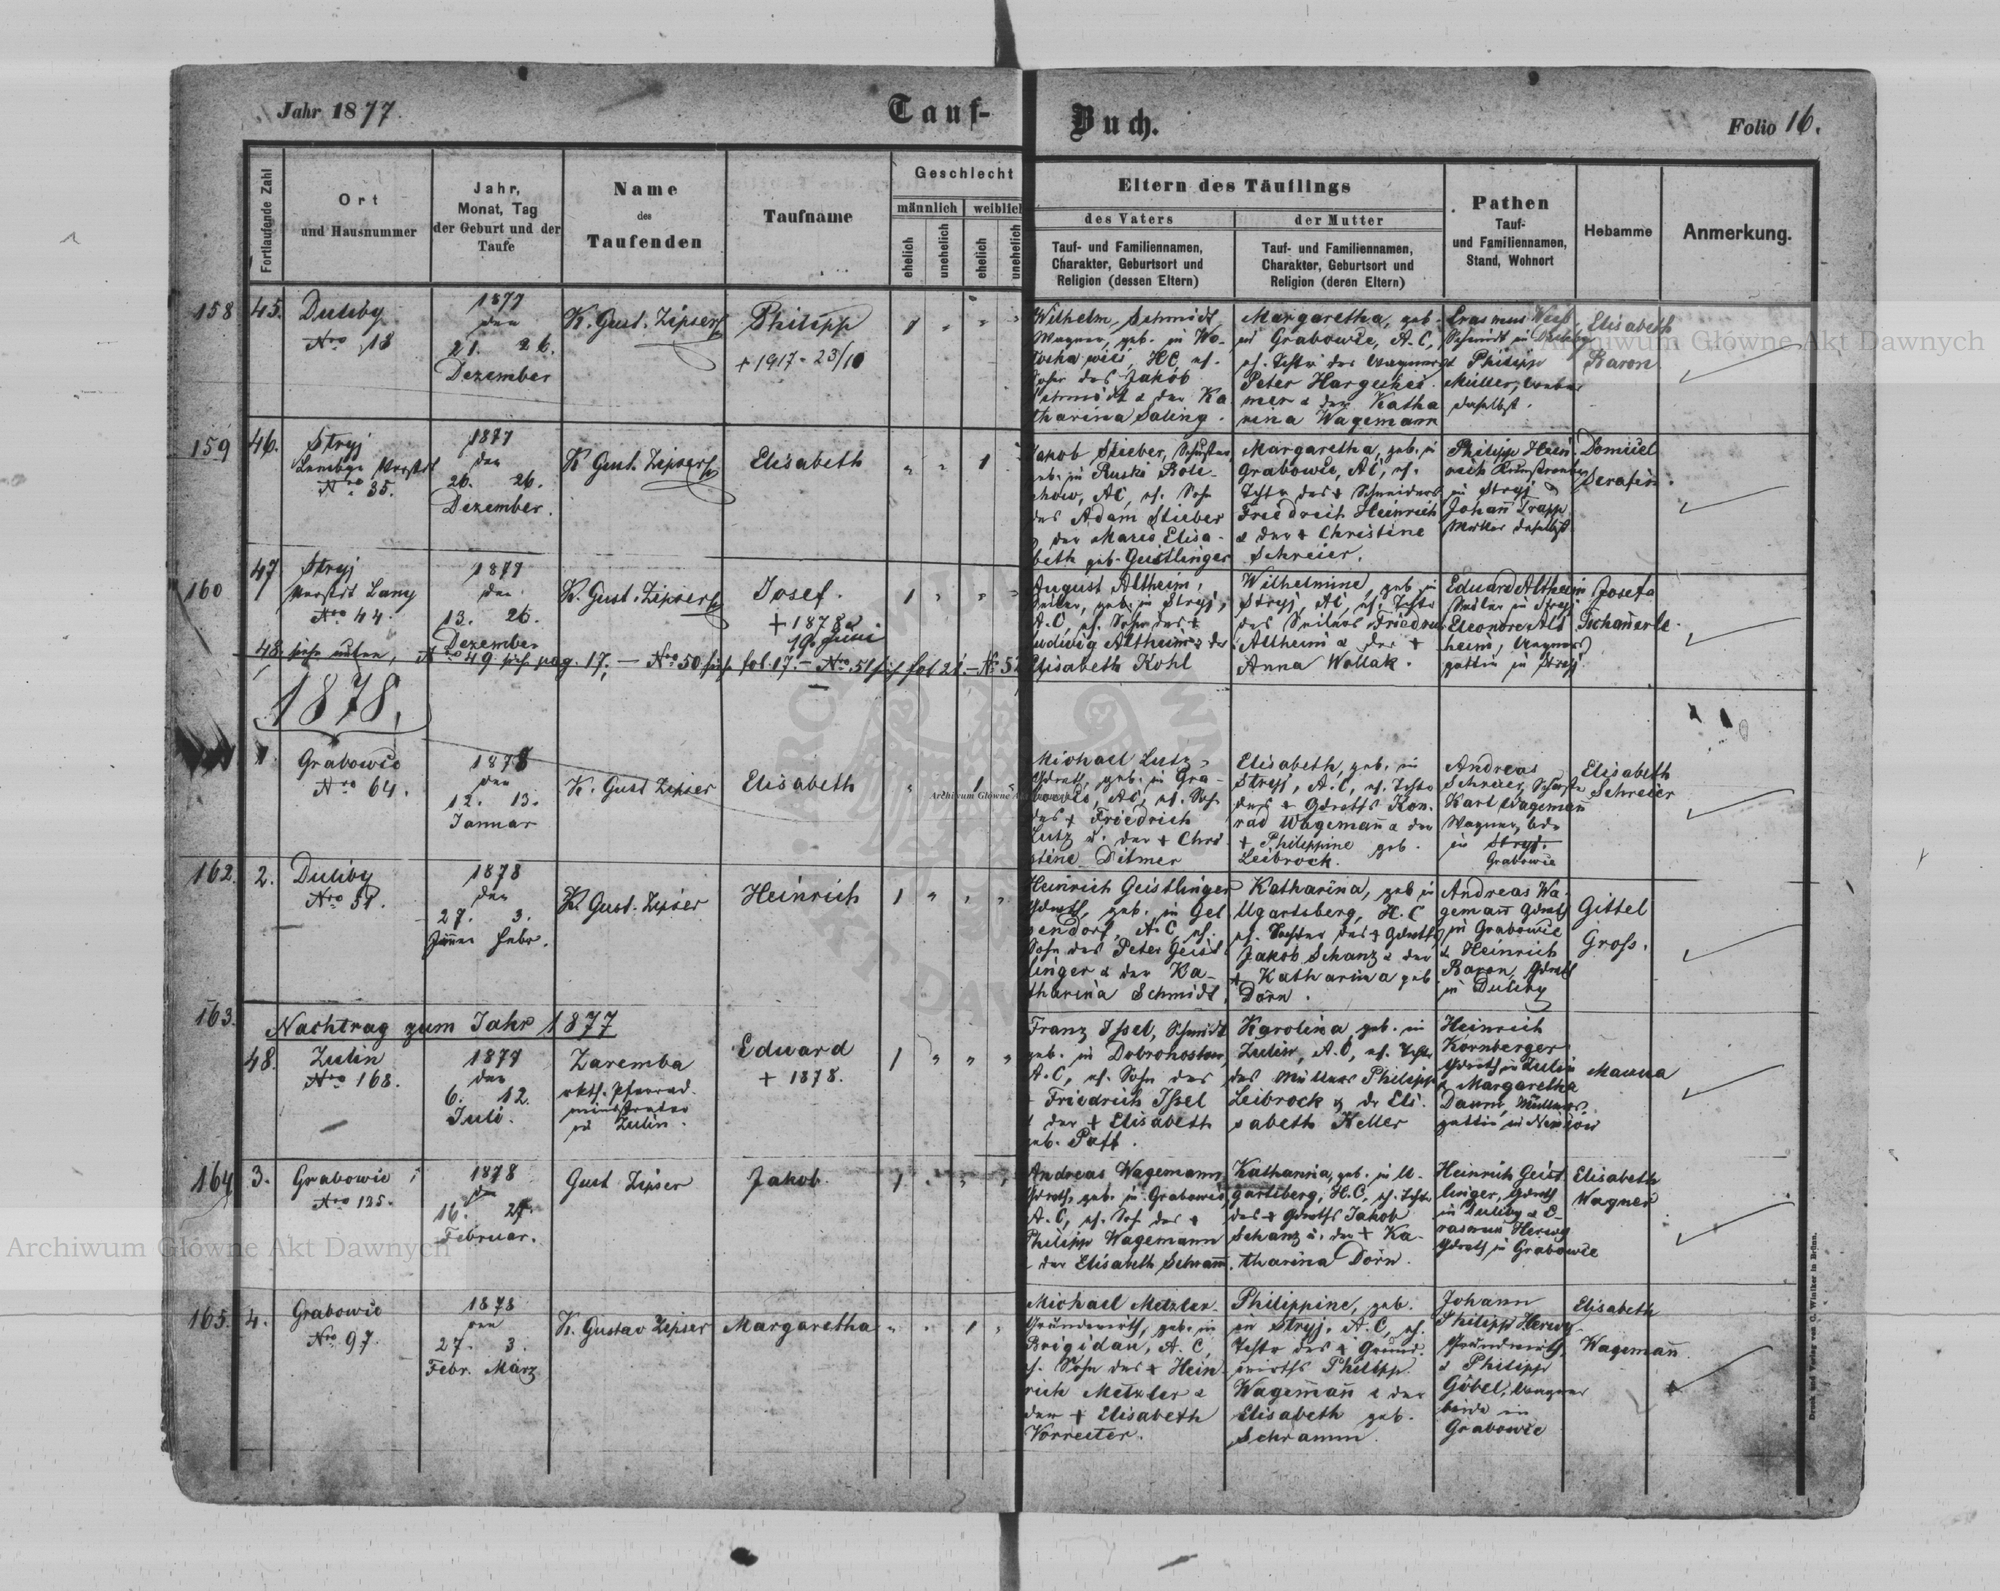 Jahr 1877.
Tauf-Buch.
Folio 16.
Fortlaufende Zahl
Ort
und Hausnummer
Jahr,
Monat, Tag
der Geburt und der
Taufe
Name
des
Taufenden
Taufname
Geschlecht
männlich
weiblich
ehelich
unehelich
ehelich
unehelich
Eltern des Täuflings
des Vaters
Tauf- und Familiennamen,
Charakter, Geburtsort und
Religion (dessen Eltern)
der Mutter
Tauf- und Familiennamen,
Charakter, Geburtsort und
Religion (deren Eltern)
Pathen
Tauf-
und Familiennamen,
Stand, Wohnort
Hebamme
Anmerkung.
158
45.
Duliby
Nro 18
1877
den
21. 26.
Dezember
K. Gust. Zipser
Philipp
+ 1917 - 23/10
1
Wilhelm Schmidt
Wagner, geb. in
HC, eh.
Sohn des Jakob
Schmidt & der Ka
tharina Saling.
Margaretha, geb.
in Grabowie, A.C,
eh. Tochter des Wagners
Peter
mer & der Katha
rina Wagemann
Erasmus
Schmidt in Duliby
& Philipp
Müller,
daselbst.
Elisabeth
Baron
159
46.
Stryj
Lembge Vorstdt
Nro 35.
1877
den
26. 26.
Dezember.
K Gust. Zipser
Elisabeth
1
Jakob Stieber, Schuster
geb. in Ruski Bole-
chow, AC, eh. Sohn
des Adam Stieber
& der Maria Elisa-
beth geb. Geistlinger
Margaretha, geb. in
Grabowie, AC, eh.
Tochter des + Schneiders
Friedrich Heinrich
& der + Christine
Schreier.
Philipp Hein
rich
in Stryj &
Johann Trapp
daselbst
Domicel
Serafin.
160
47
Stryj
Vorstdt Lany
Nro 44.
1877
den
13. 26.
Dezember
K. Gust. Zipser
Josef.
+ 1878
19 Juni
1
August Altheim,
Seiler, geb. in Stryj,
A.C, eh. Sohn des +
Ludwig Altheim & der
Elisabeth Kohl
Wilhelmine, geb in
Stryj, AC, eh. Tochter
des Seilers Friedrich
Altheim & der +
Anna Wollak.
Eduard Altheim
Seiler in Stryj
Eleonore Alt
heim, Wagners
gattin in Stryj
Josefa
Tschauerle.
48. siehe unten, Nro 49 sieh pag. 17. — Nro 50 sieh fol. 17. — Nro. 51 sieh fol 21. — Nr 52
1878.
1.
Grabowie
Nro 64.
1878
den
12. 13.
Januar
K. Gust Zipser
Elisabeth
1
Michael Lutz,
Gdwrth, geb. in Gra-
bowie, AC, eh. Sohn
des + Friedrich
Lutz & der + Chri
stine Ditmer
Elisabeth, geb. in
Stryj, A.C, eh. Tochter
des + Gdwrths Kon-
rad Wagemann & der
+ Philippine geb.
Leibrock.
Andreas
Schreier, Schuster
Karl Wagemann
Wagner, beide
in Stryj.
Grabowie
Elisabeth
Schreier
162.
2.
Duliby
Nro 51.
1878
den
27. 3.
Jänner Febr.
K. Gust. Zipser
Heinrich
1
Heinrich Geistlinger
Gdwrth, geb. in Gel
sendorf, A.C, eh.
Sohn des Peter Geist
linger & der Ka-
tharina Schmidt.
Katharina, geb in
Ugartsberg, H.C
eh. Tochter des + Gdwrths
Jakob Schanz & der
+ Katharina geb
Dörn.
Andreas Wa-
gemann Gdwrth
in Grabowie
& Heinrich
Baron, Gdwrth
in Duliby
Gittel
Gross.
163.
Nachtrag zum Jahr 1877
48.
Zulin
Nro 168.
1877
den
6. 12.
Juli.
Zaremba
rkth. Pfarrad-
ministrator
in Zulin.
Eduard
+ 1878.
1
Franz Issel, Schmidt
geb. in Dobrohostow,
A.C, eh. Sohn des
Friedrich Issel
& der + Elisabeth
geb. Paff.
Karolina, geb. in
Zulin, A.C, eh. Tochter
des Müllers Philipp
Leibrock & der Eli-
sabeth Keller
Heinrich
Kornberger
Gdwrth in Zulin
& Margaretha
Daum, Müllers
gattin in
164
3.
Grabowie
Nro 135.
1878
den
16. 24.
Februar.
Gust. Zipser
Jakob.
1
Andreas Wagemann
Gdwrth, geb. in Grabowie
A.C, eh. Sohn des +
Philipp Wagemann
& der Elisabeth Schramm.
Katharina, geb. in U-
gartsberg, H.C, eh. Tochter
des + Gdwrths Jakob
Schanz u. der + Ka-
tharina Dörn.
Heinrich Geist
linger, Gdwrth
in Duliby & E-
rasmus Herwig
Gdwrth in Grabowie
Elisabeth
Wagner
165.
4.
Grabowie
Nro 97.
1878
den
27. 3.
Febr. März
K. Gustav Zipser
Margaretha
1
Michael Metzler
Grundwirth, geb. in
Brigidau, A.C,
eh. Sohn des + Hein
rich Metzler &
der + Elisabeth
Vorreiter.
Philippine, geb.
in Stryj, A.C, eh.
Tochter des + Grund-
wirths Philipp
Wagemann & der
Elisabeth geb.
Schramm.
Johann
Philipp Herwig
Grundwirth,
& Philipp
Göbel, Wagner
beide in
Grabowie
Elisabeth
Wagemann.
Druck und Verlag von C. Winiker in Brünn.
Archiwum Główne Akt Dawnych
Archiwum Główne Akt Dawnych